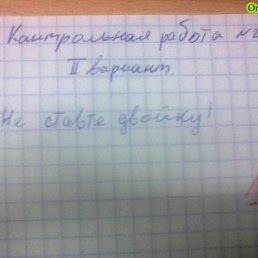 Кантрольная работа №2
II вариант.
Не ставте двойку!